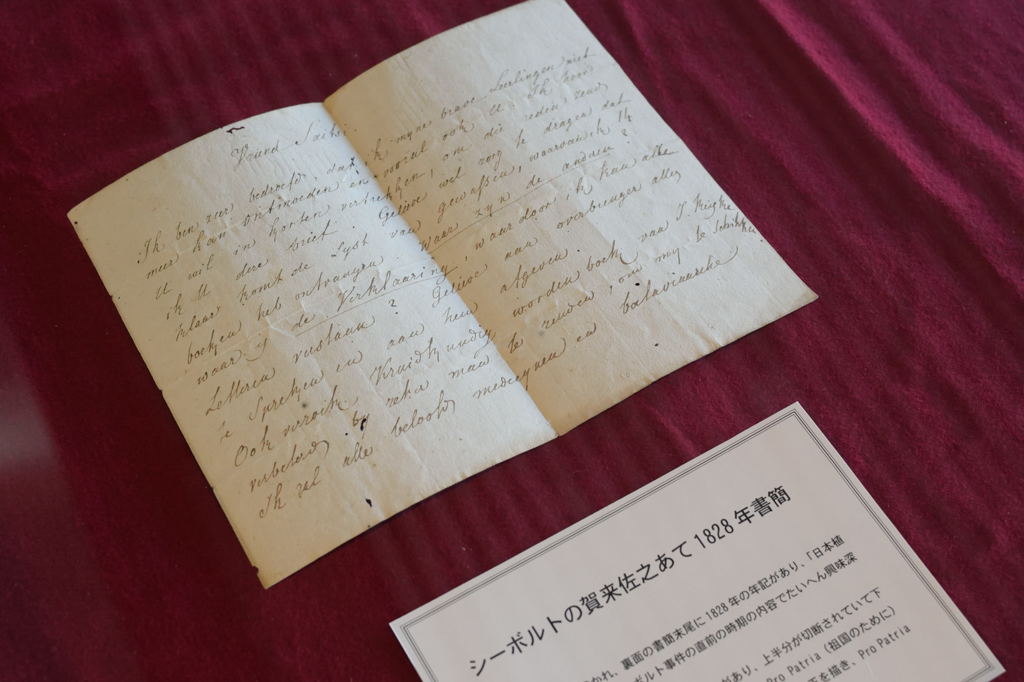 Vriend Saito
Ik ben zeer bedroefd, dat ik myne brave Leerlingen niet
meer kan ontmoeten en vooral ook U. Ik hoor
U wil in korten vertrekken, om die reden zend
ik U deze brief. Gelieve wel zorg te dragen dat
klaar komt de Lyst van gewassen, waarvan ik 14
boeken heb ontvangen. Waar zyn de andere?
waar is de Verklaaring, waardoor ik kan alle
Letteren verstaan? Gelieve nau overbrenger alles
te Spreken en aan hem afgeven.
Ook verzoek Kruidkundig woordenboek van
verbeterd by zeker man te zenden, om my te
Ik zal alle beloofd medecynen en bataviasche
シーボルトの賀来佐之あて1828年書簡
かれ、裏面の書簡末尾に1828年の年記があり、「日本植
ボルト事件の直前の時期の内容でたいへん興味深
があり、上半分が切断されていて下
Pro Patria(祖国のために)
を描き、Pro Patria